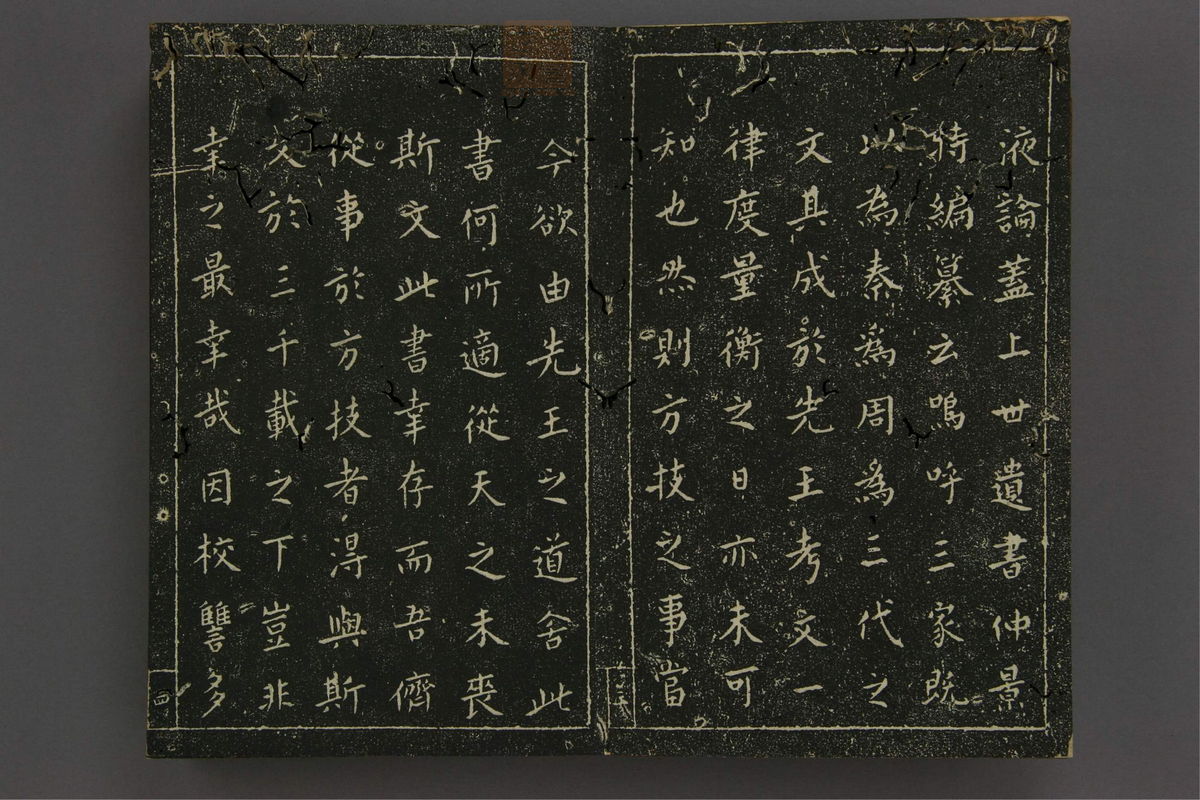 液論蓋上世遺書仲景
特編纂云嗚呼三家既
以為秦爲周爲三代之
文具成於先王考文一
律度量衡之日亦未可
知也然則方技之事當
今欲由先王之道舍此
書何所適從天之未喪
斯文此書幸存而吾儕
從事於方技者得與斯
文於三千載之下豈非
幸之最幸哉因校讐多